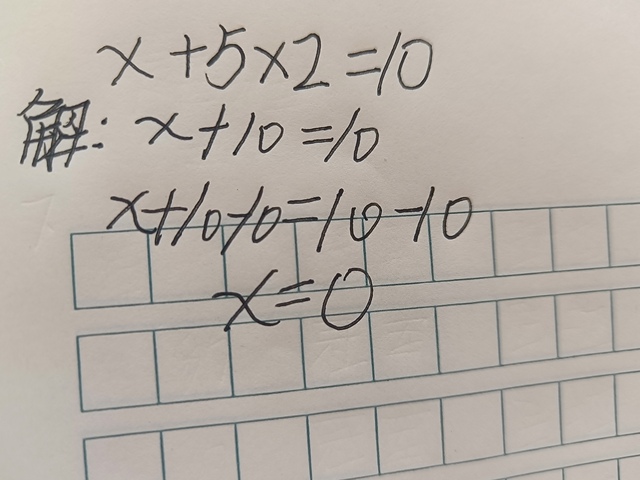 x+5×2=10
解: x+10=10
x+10-10=10-10
x=0